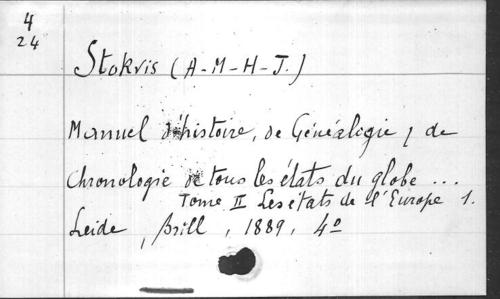 4
24
Stokvis (A-M-H-J.)
Manuel d'histoire, de Généalogie, de
Chronologie de tous les états du globe ...
Tome II Les états de l'Europe 1.
Leide, Brill, 1889, 4º